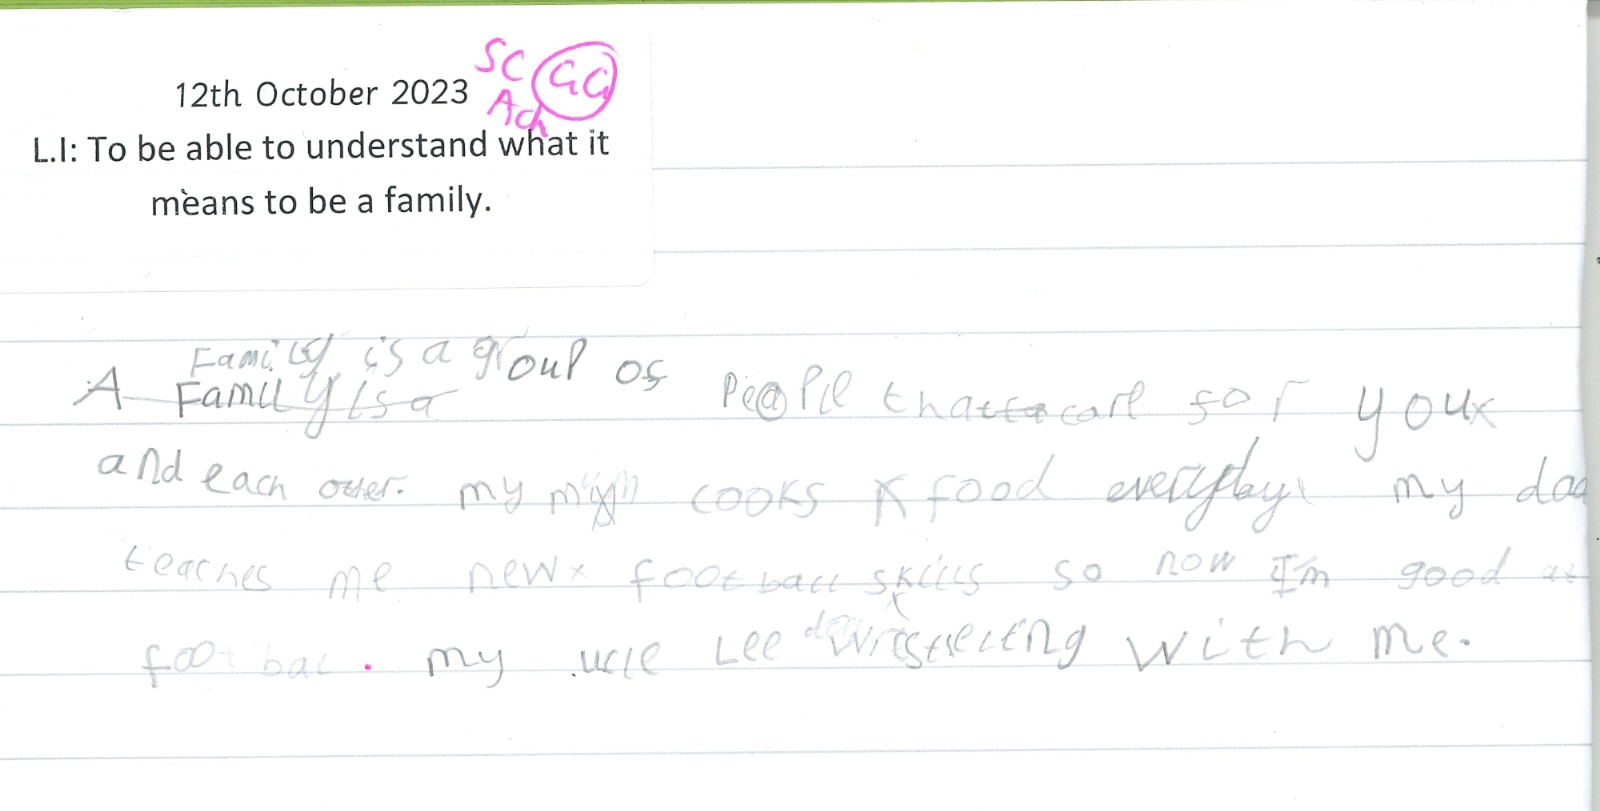 12th October 2023 SC GG
Ach
L.I: To be able to understand what it
means to be a family.
Family is a group of
A Family is a Peaple that care for you
and each outher. my mum cooks food everyday. my dad
teaches me new football skills so now I'm good at
footbal. my ucle Lee wresteling with me.